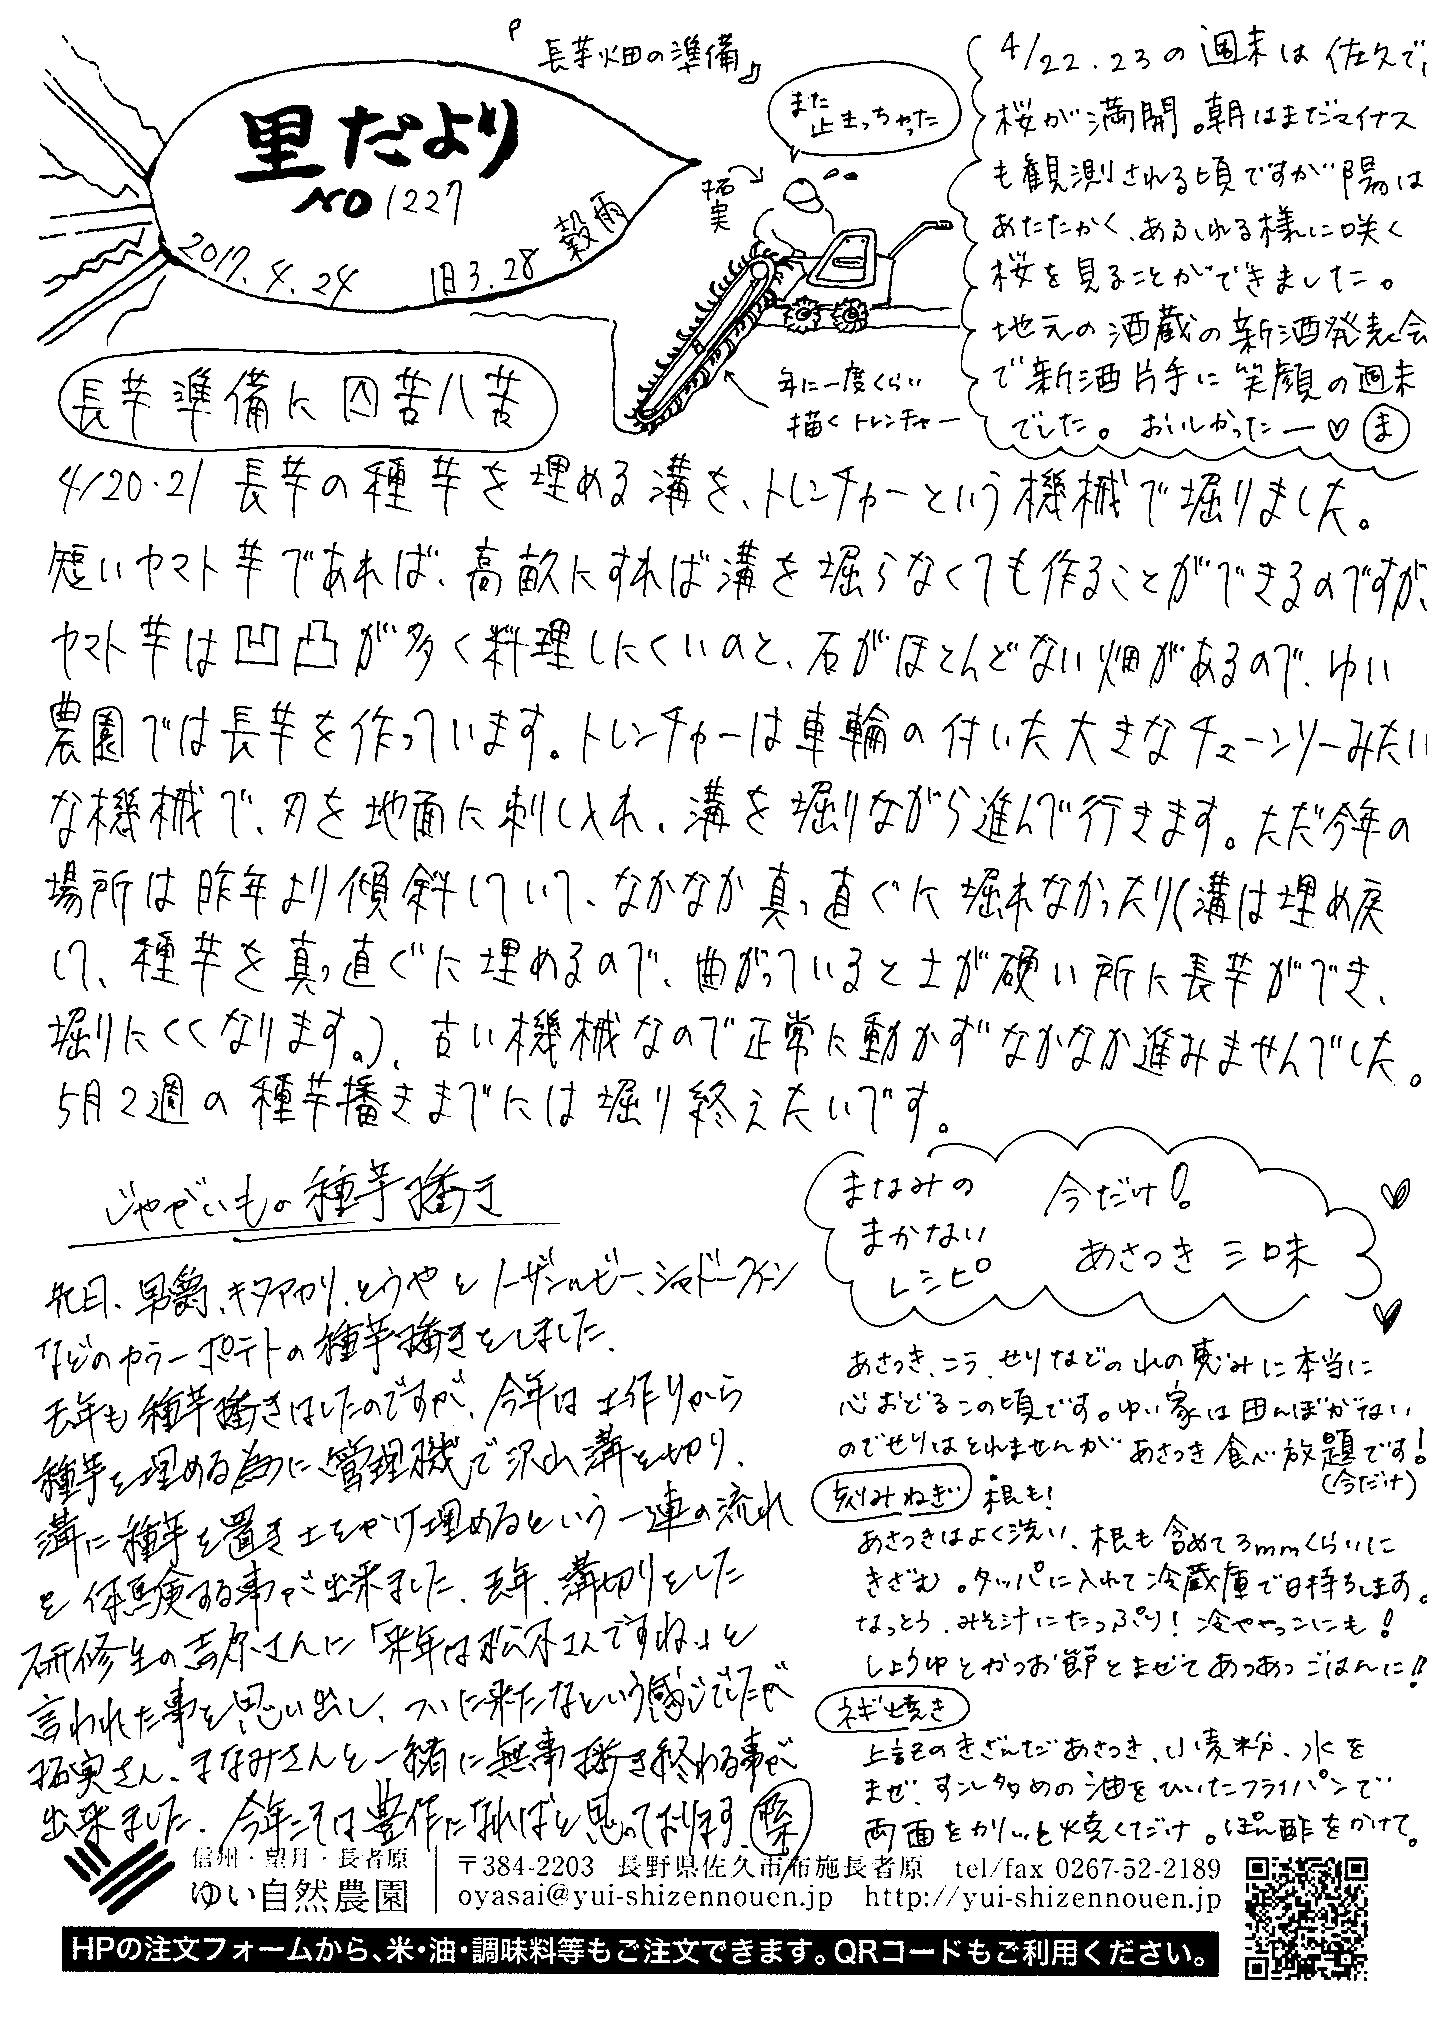 里だより
NO 1227
2017.4.24 旧3.28 穀雨
『長芋畑の準備』
また
止まっちゃった
拓実
年に一度くらい
描くトレンチャー
4/22.23の週末は佐久で、
桜が満開。朝はまだマイナス
も観測される頃ですが陽は
あたたかく、あふれる様に咲く
桜を見ることができました。
地元の酒蔵の新酒発表会
で新酒片手に笑顔の週末
でした。おいしかったー♡ま
長芋準備に四苦八苦
4/20・21 長芋の種芋を埋める溝を、トレンチャーという機械で堀りました。
短いヤマト芋であれば、高畝にすれば溝を堀らなくても作ることができるのですが、
ヤマト芋は凹凸が多く料理しにくいのと、石がほとんどない畑があるので、ゆい
農園では長芋を作っています。トレンチャーは車輪の付いた大きなチェーンソーみたい
な機械で、刃を地面に刺し入れ、溝を堀りながら進んで行きます。ただ今年の
場所は昨年より傾斜していて、なかなか真っ直ぐに堀れなかったり(溝は埋め戻
して、種芋を真っ直ぐに埋めるので、曲がっていると土が硬い所に長芋ができ、
堀りにくくなります。)、古い機械なので正常に動かずなかなか進みませんでした。
5月2週の種芋播きまでには堀り終えたいです。
じゃがいもの種芋播き
先日、男爵、キタアカリ、とうやとノーザンルビー、シャドークイーン
などのカラーポテトの種芋播きをしました。
去年も種芋播きはしたのですが、今年は土作りから
種芋を埋める為に管理機で沢山溝を切り、
溝に種芋を置き土をかけ埋めるという一連の流れ
を体験する事が出来ました。去年、溝切りをした
研修生の吉原さんに「来年は松尾さんですね」と
言われた事を思い出し、ついに来たなという感じでしたが
拓実さん、まなみさんと一緒に無事播き終わる事が
出来ました。今年こそは豊作になればと思っております。
まなみの
まかない
レシピ
今だけ!
あさつき三昧
あさつき、こう、せりなどの山の恵みに本当に
心おどるこの頃です。ゆい家は田んぼがない
のでせりはとれませんがあさつき食べ放題です!
(今だけ)
刻みねぎ 根も!
あさつきはよく洗い、根も含めて3mmくらいに
きざむ。タッパに入れて冷蔵庫で日持ちします。
なっとう、みそ汁にたっぷり!冷ややっこにも!
しょうゆとかつお節とまぜてあつあつごはんに!!
ネギ焼き
上記のきざんだあさつき、小麦粉、水を
まぜ、すこし多めの油をひいたフライパンで
両面をカリッと焼くだけ。ぽん酢をかけて。
信州・望月・長者原
ゆい自然農園
〒384-2203 長野県佐久市布施長者原 tel/fax 0267-52-2189
oyasai@yui-shizennouen.jp http://yui-shizennouen.jp
HPの注文フォームから、米・油・調味料等もご注文できます。QRコードもご利用ください。